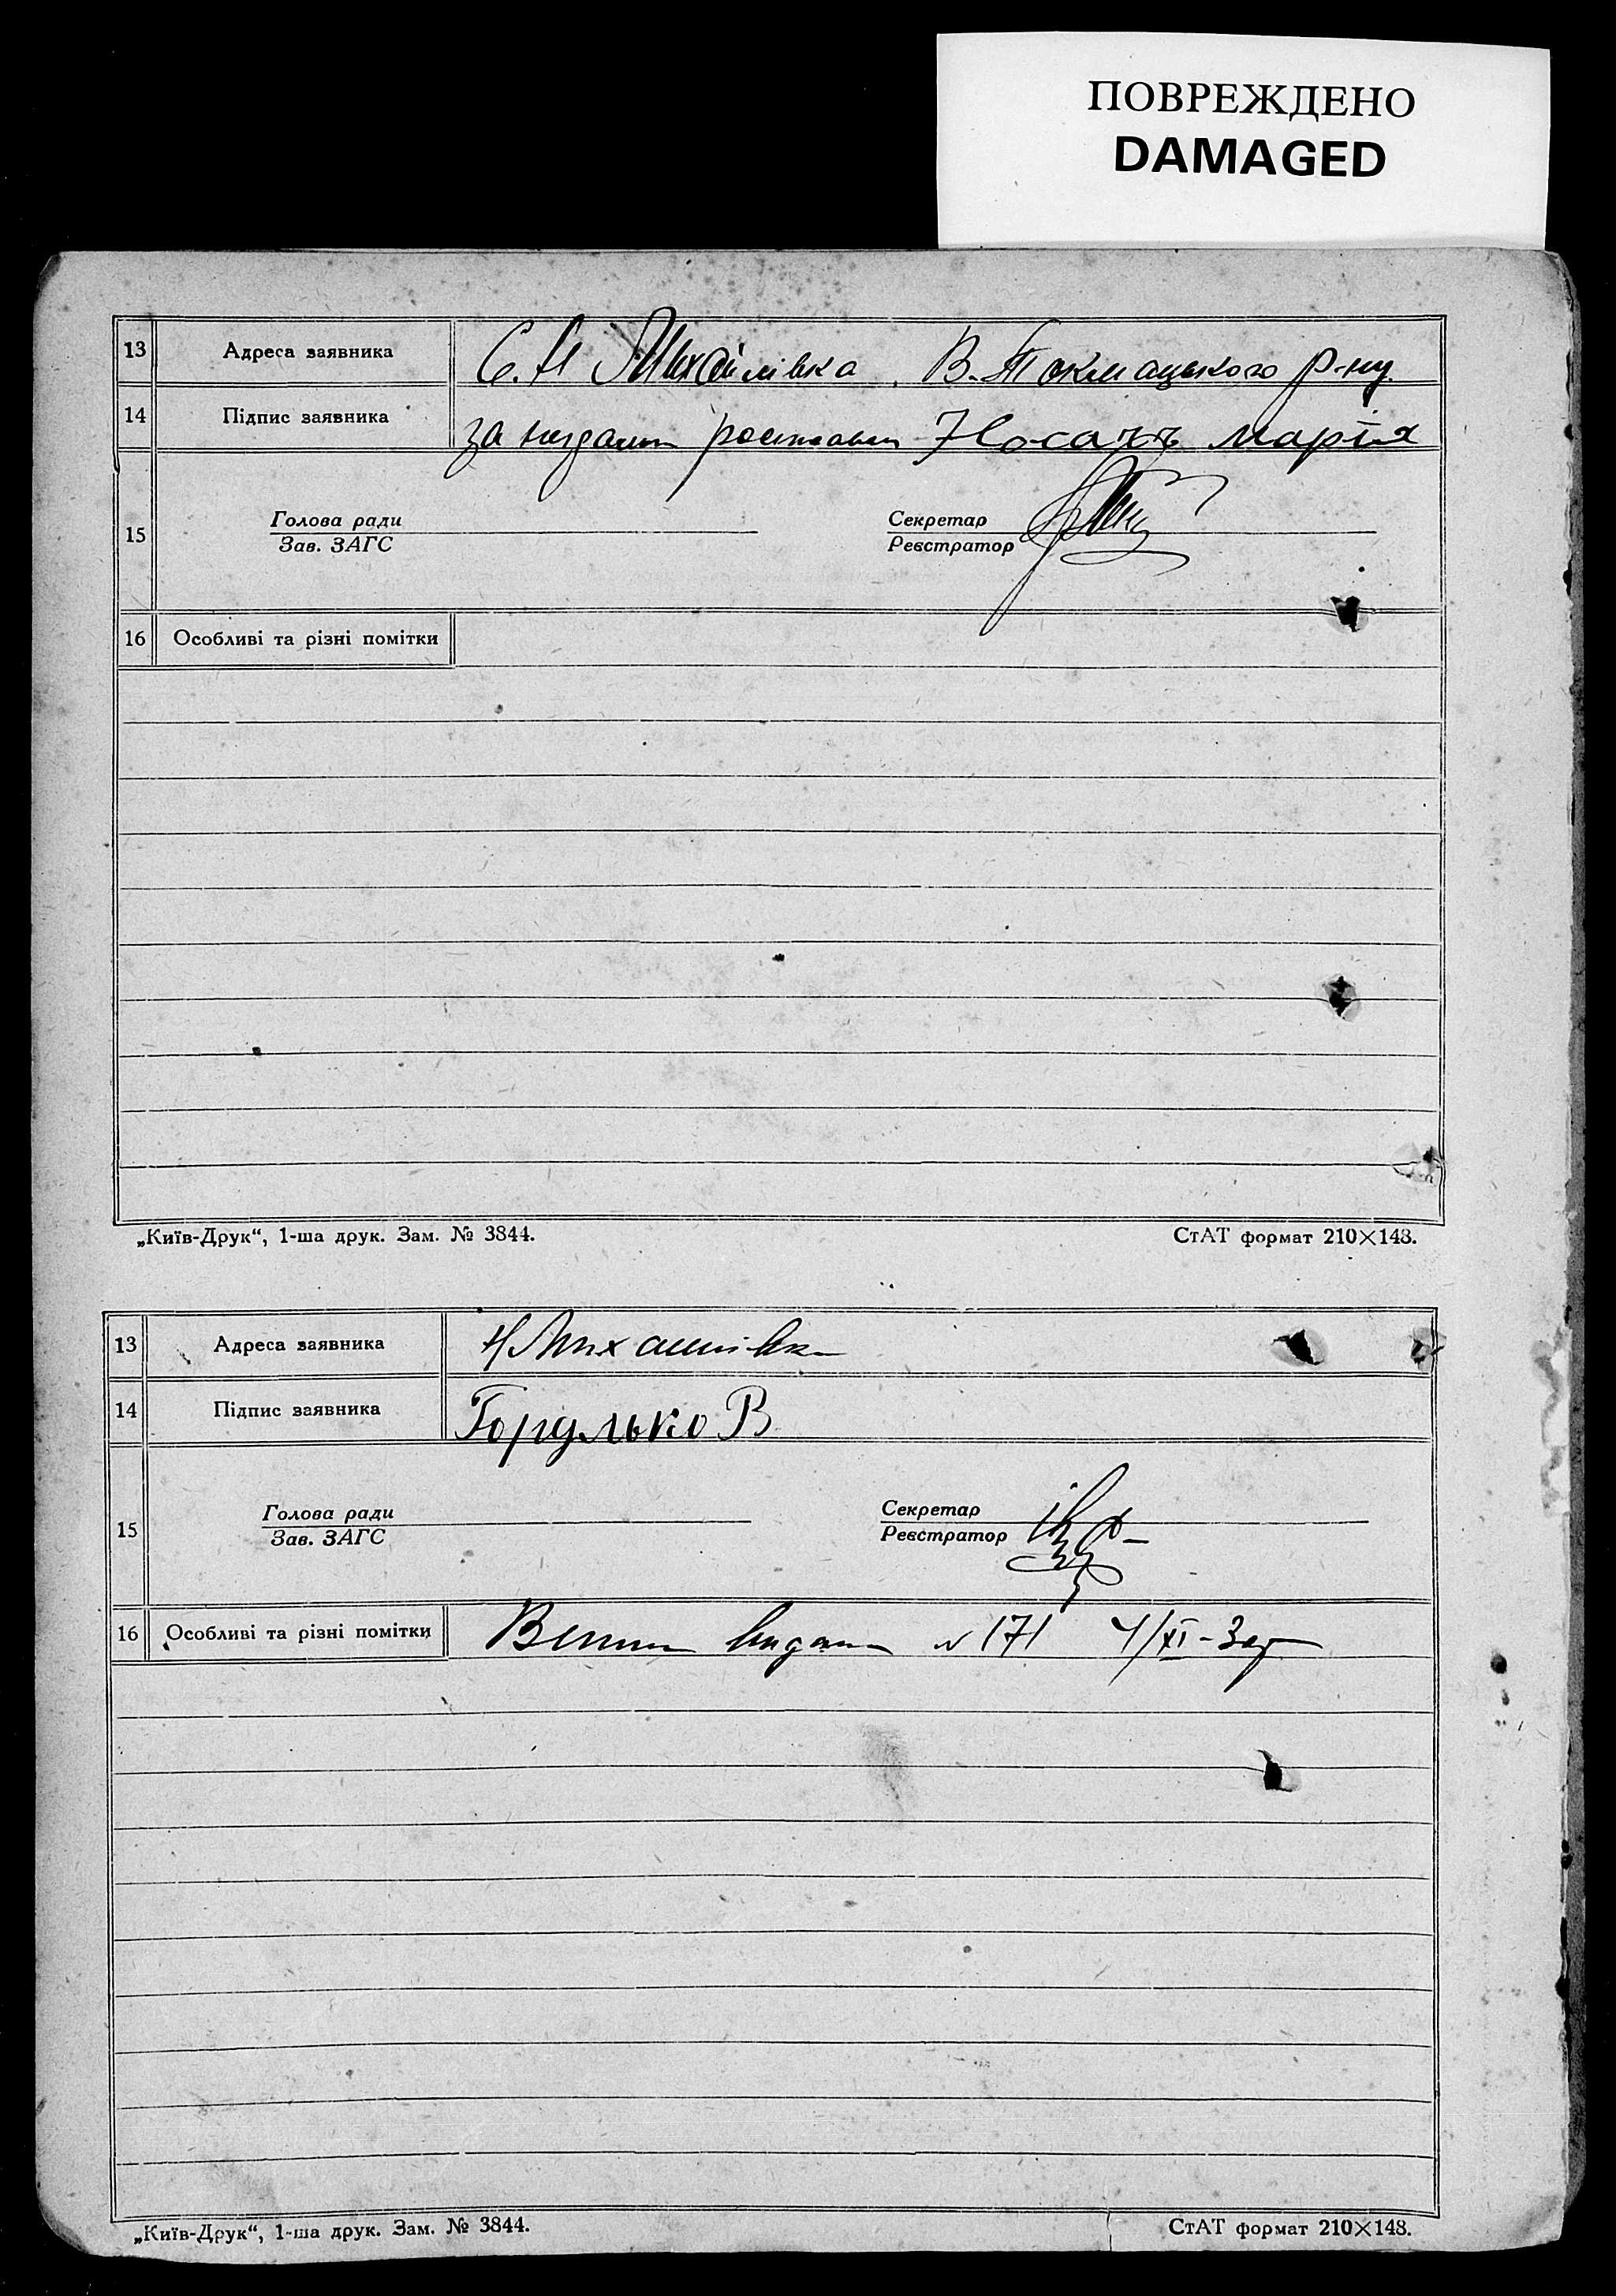 ПОВРЕЖДЕНО
DAMAGED
13 Адреса заявника С. Н Михайлівка, В.-Токмацького р-ну.
14 Підпис заявника за Носачъ марія
15 Голова ради Секретар
Зав. ЗАГС Реєстратор
16 Особливі та різні помітки
„Київ-Друк“, 1-ша друк. Зам. № 3844. СтАТ формат 210×148.
13 Адреса заявника Н Михайлівка
14 Підпис заявника Горулько В
15 Голова ради Секретар
Зав. ЗАГС Реєстратор
16 Особливі та різні помітки видана № 171 4/XI-
„Київ-Друк“, 1-ша друк. Зам. № 3844. СтАТ формат 210×148.